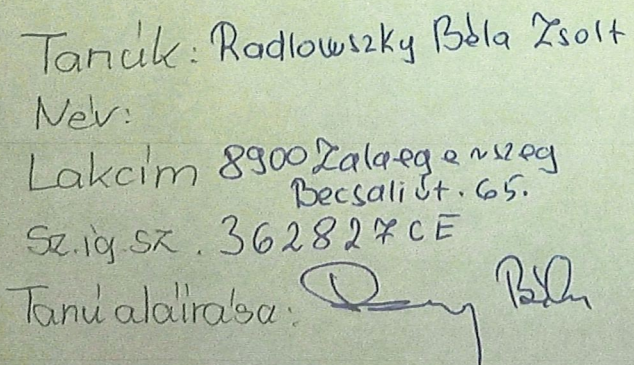 Tanúk: Radlowszky Béla Zsolt
Név:
Lakcím 8900 Zalaegerszeg
Becsali út. 65.
Sz.ig.sz. 362827CE
Tanú aláírása: